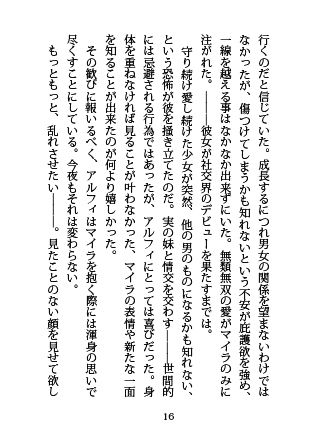 行くのだと信じていた。成長するにつれ男女の関係を望まないわけでは
なかったが、傷つけてしまうかも知れないという不安が庇護欲を強め、
一線を越える事はなかなか出来ずにいた。無類無双の愛がマイラのみに
注がれた。――彼女が社交界のデビューを果たすまでは。
守り続け愛し続けた少女が突然、他の男のものになるかも知れない、
という恐怖が彼を掻き立てたのだ。実の妹と情交を交わす――世間的
には忌避される行為ではあったが、アルフィにとっては喜びだった。身
体を重ねなければ見ることが叶わなかった、マイラの表情や新たな一面
を知ることが出来たのが何より嬉しかった。
その歓びに報いるべく、アルフィはマイラを抱く際には渾身の思いで
尽くすことにしている。今夜もそれは変わらない。
もっともっと、乱れさせたい――。見たことのない顔を見せて欲し
16